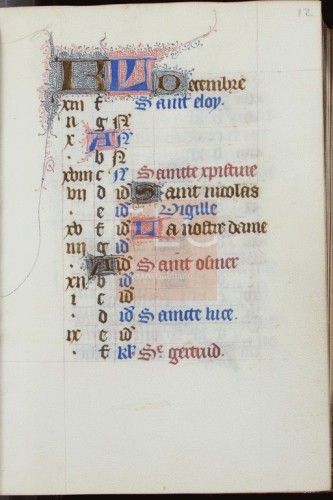 12
KL Decembre
xiii f Saint eloy.
ii g N
x A N
. b N
xviii c N Saincte xpistine
vii d id Saint nicolas
. e id Vigille
xv f id La nostre dame
iiii g id
. A id Saint osmer
xii b id
i c id
. d id Saincte luce.
ix e id
. f kl Se gertrud.